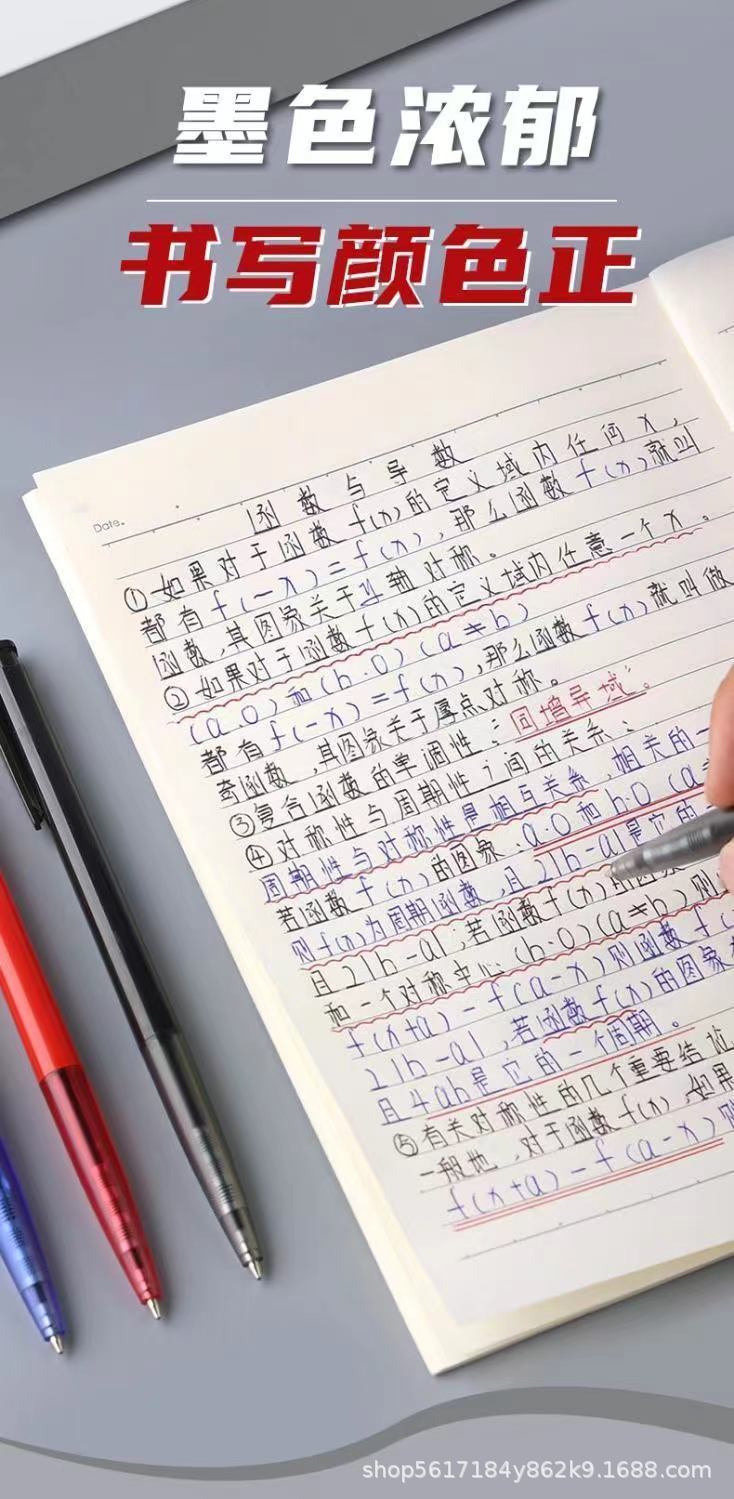 墨色浓郁
书写颜色正
Date.
函数与导数
①如果对于函数f(x)的定义域内任何x,
都有f(-x)=f(x),那么函数f(x)就叫
函数,其图象关于y轴对称。
②如果对于函数f(x)的定义域内任意一个x。
(a.0)和(b.0)(a≠b)
都有f(-x)=f(x),那么函数f(x)就叫做
奇函数,其图象关于厚点对称。
③复合函数的单调性:"同增异域"。
④对称性与周期性之间的关系:
周期性与对称性是相互关系,相关的一
若函数f(x)的图象.a.0和b.0(a≠
则f(x)为周期函数,且2|b-a|是它的
且2|b-a|;若函数f(x)的图象
和一个对称中心(b.0)(a≠b)则
f(x+a)-f(a-x)则函数f(
2|b-a|,若函数f(x)的图象
且4ab是它的一个周期。
⑤有关对称性的几个重要结论
一般地,对于函数f(x),如果
f(x+a)-f(a-x)则
shop5617184y862k9.1688.com